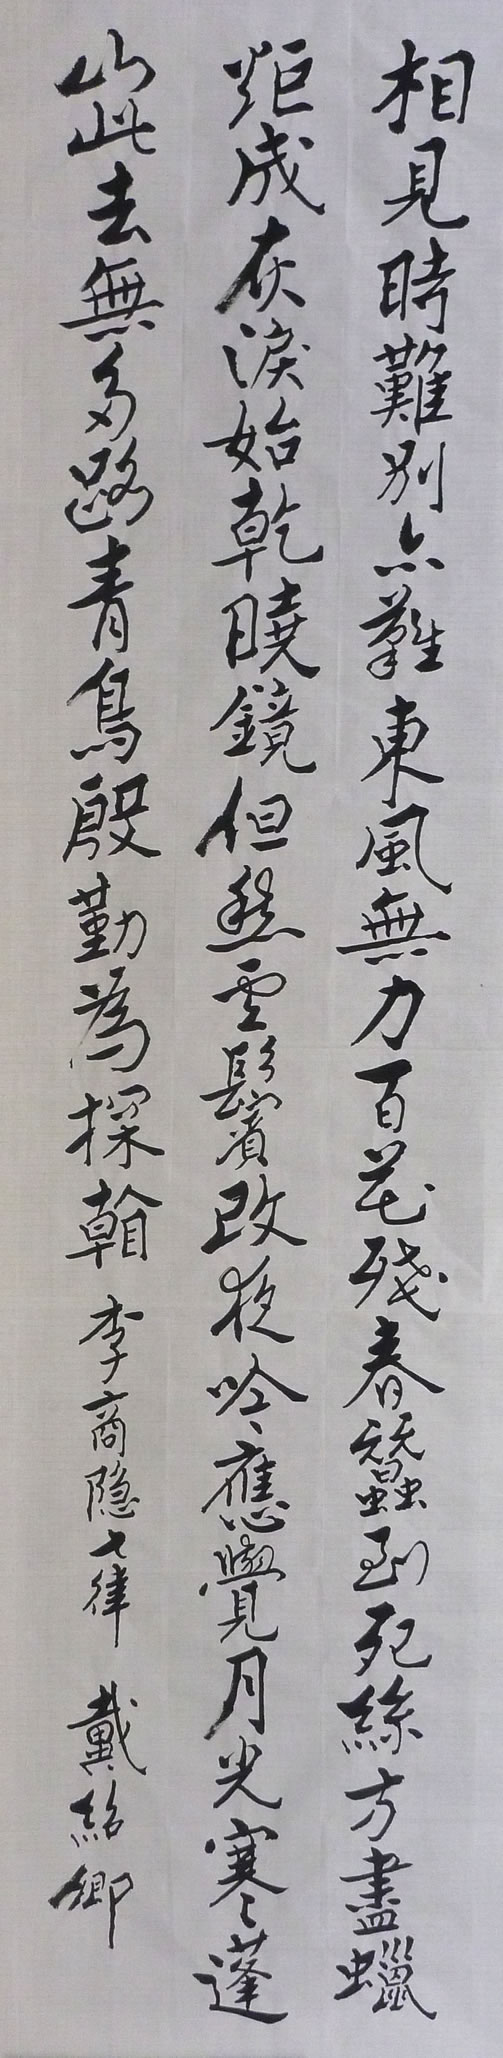 相見時難別亦難東風無力百花殘春蠶到死絲方盡蠟
炬成灰淚始乾曉鏡但愁雲鬢改夜吟應覺月光寒蓬
山此去無多路青鳥殷勤為探翰 李商隐七律 戴紹卿